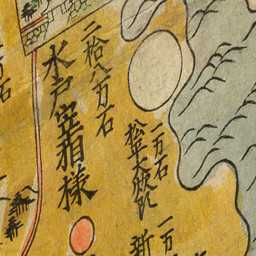 二拾八万石
水戸宰相様
一万石
松平大炊頭
一万
新
万石